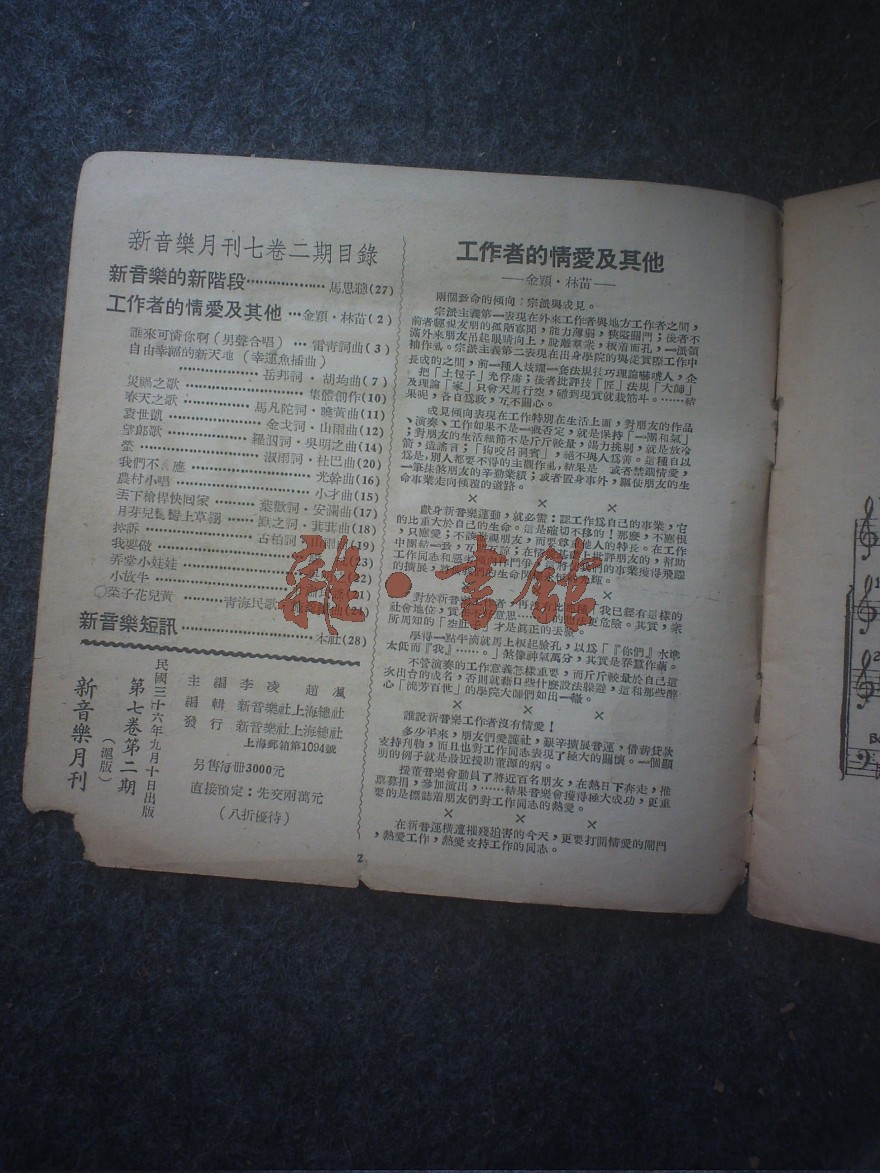 新音樂月刊七卷二期目錄
新音樂的新階段……………馬思聰(27)
工作者的情愛及其他…金顆・林苗(2)
誰來可憐你啊(男聲合唱)…雷青詞曲(3)
自由幸福的新天地(幸運魚插曲)
……………岳邦詞・胡均曲(7)
災禍之歌……………集體創作(10)
春天之歌…………馬凡陀詞・曉黃曲(11)
袁世凱……………金戈詞・山雨曲(12)
望郎歌…………羅泗詞・吳明之曲(14)
螢……………淑雨詞・杜巴曲(20)
我們不 應……………尤幹曲(16)
農村小唱……………小才曲(15)
丟下槍桿快回家……葉歡詞・安瀾曲(17)
月芽兒 上草 …默之詞・萁萁曲(18)
控訴……………古柏詞・山雨曲(19)
我要做……………(23)
弄堂小娃娃……………(22)
小放牛……………(21)
菜子花兒黃……青海民歌(24)
新音樂短訊……………本社(28)
主編 李凌 趙渢
編輯 新音樂社上海總社
發行 新音樂社上海總社
上海郵箱第1094號
另售每冊3000元
直接預定:先交兩萬元
(八折優待)
民國三十六年九月十日出版
第七卷第二期
(滬版)
新音樂月刊
2
工作者的情愛及其他
——金顆・林苗——
兩個致命的傾向:宗派與成見。
宗派主義第一表現在外來工作者與地方工作者之間,
前者輕視友朋的孤陋寡聞,能力薄弱,狹隘關門;後者不
滿外來朋友吊起眼睛向上,脫離羣衆,板着面孔,一派領
袖作風。宗派主義第二表現在出身學院的與從實際工作中
長成的之間,前一種人炫燿一套法規技巧理論嚇唬人,企
把「土包子」充俘虜;後者批評技「匠」法規「大師」
及理論「家」只會天馬行空,碰到現實就栽筋斗。……結
果呢,各自爲政,互不關心。
成見傾向表現在工作特別在生活上面,對朋友的作品
、演奏、工作如果不是一概否定,就是保持「一團和氣」
;對朋友的生活細節不是斤斤較量,竭力挑剔,就是放冷
箭,造謠言;「狗咬呂洞賓」,絕不與人爲善。這種自以
爲是,人都要不得的主觀作風,結果是 或者禁錮情愛,
一筆抹煞朋友的辛勤業績;或者置身事外,驅使朋友的生
命事業走向傾覆的道路。
× × ×
獻身新音樂運動,就必需:認工作爲自己的事業,它
的比重大於自己的生命。這是確切不移的!那麼,不應恨
,只應愛;不該輕視朋友,而要尊重他人的特長。在工作
中團結一致,互相 ;在情愛基礎上批評朋友的,幫助
工作同志和 傾向作鬥爭, 的事業獲得飛躍
的擴展, 們的生命 光輝。
× × ×
對於新音樂工作者,再沒有比 「我已經有這樣的
社會地位, 意思…… 更危險。其實,衆
所周知的「空肚子」才是眞正的去臉
學得一點牛滴就馬上板起臉孔,以爲「『你們』水準
太低而『我』……。」煞像神氣萬分,其實是春蠶作繭。
不管演奏的工作意義怎樣重要,而斤斤較量於自己這
次出台的成名,否則就藉口些什麼設法躲避,這和那些醉
心「流芳百世」的學院大師們如出一轍。
× × ×
誰說新音樂工作者沒有情愛!
多少年來,朋友們愛護社,艱辛擴展音運,借薪貸款
支持刊物,而且也對工作同志表現了極大的關懷。一個顯
明的例子就是最近援助董源的病。
援董音樂會動員了將近百名朋友,在熱日下奔走,推
票募捐,參加演出,……結果音樂會獲得極大成功,更重
要的是標誌着朋友們對工作同志的熱愛。
× × ×
在新音運橫遭摧殘迫害的今天,更要打開情愛的閘門
,熱愛工作,熱愛支持工作的同志。
雜・書館